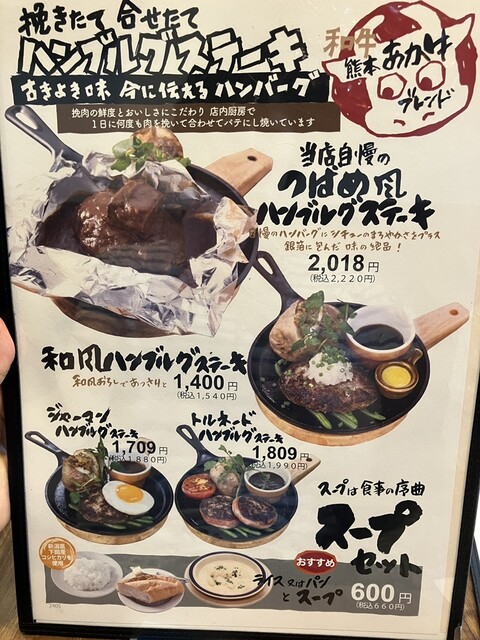 挽きたて 合せたて
ハンブルグステーキ
古きよき味 今に伝える ハンバーグ
挽肉の鮮度とおいしさにこだわり 店内厨房で
1日に何度も肉を挽いて合わせてパテにし焼いています
和牛
熊本あか牛
ブレンド
当店自慢の
つばめ風
ハンブルグステーキ
自慢のハンバーグにシチューのまろやかさをプラス
銀箔に包んだ 味の絶品!
2,018円
(税込2,220円)
和風ハンブルグステーキ
和風おろしであっさりと 1,400円
(税込1,540円)
ジャーマン
ハンブルグステーキ
1,709円
(税込1,880円)
トルネード
ハンブルグステーキ
1,809円
(税込1,990円)
スープは食事の序曲
スープ
セット
新潟県
下田産
コシヒカリを
使用
おすすめ
ライス又はパン
とスープ
600円
(税込660円)
2405